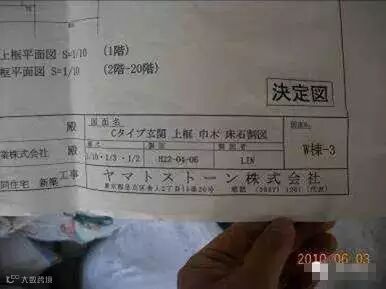 上框平面図 S=1/10 (1階)
框平面図 S=1/10 (2階-20階)
決定図
殿
図面名
Cタイプ玄関 上框 巾木 床石割図
図面No
業株式会社 殿
1/10・1/3・1/2
H22-04-06
LIN
W棟-3
同住宅 新築 工事
ヤマトストーン株式会社
2010 06 03
大数跨境